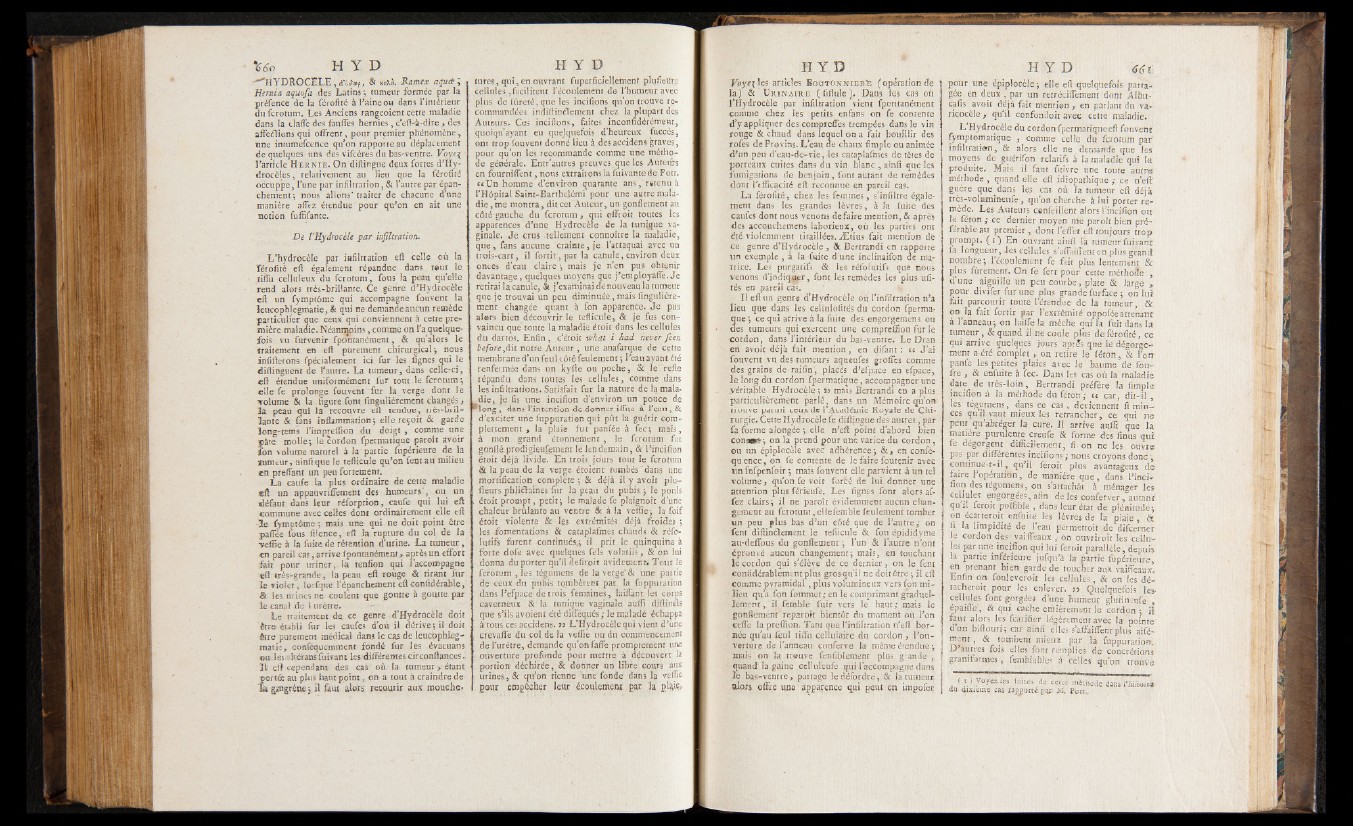 660 H Y D H Y D
HYDROCÈLE, & Ramex aquæ ;
Hernia aquosa des Latins ; tumeur formée par la
présence de la sérosité à l'aine ou dans l'intérieur
du scrotum. Les Anciens rangeoient cette maladie
dans la classe des fausses hernies, c'est-à-dire, des
affections qui offrent, pour premier phénomène,
une intumescence qu'on rapporte au déplacement
de quelques uns des viscères du bas-ventre. Voyez
l'article HERNIE. On distingue deux sortes d'Hy-
drocèles, relativement au lieu que la sérosité
occuppe, l'une par infiltration, & l'autre par épan-
chement ; nous allons traiter de chacune d'une
manière assez étendue pour qu'on en ait une
notion suffisante.
De l'Hydrocèle par infiltration.
L'hydrocèle par infiltration est celle où la
sérosité est également répandue dans tout le
tissu celluleux du scrotum, sous la peau qu'elle
rend alors très-brillante. Ce genre d'Hydrocèle
est un symptôme qui accompagne souvent la
leucophlegmatie, & qui ne demande aucun remède
particulier que ceux qui conviennent à cette pre-
mière maladie. Néanmoins, comme on l'a quelque-
fois vu survenir spontanément, & qu'alors le
traitement en est purement chirurgical, nous
insisterons spécialement ici sur les signes qui le
distinguent de l'autre. La tumeur, dans celle-ci,
est étendue uniformément sur tout le scrotum ;
elle se prolonge souvent sur la verge dont le
volume & la figure sont singulièrement changés ;
la peau qui la recouvre est tendue, très-bril-
lante & sans inflammation ; elle reçoit & garde
long-tems l'impression du doigt, comme une
pâte molle; le cordon spermatique paroît avoir
son volume naturel à la partie supérieure de la
tumeur, ainsi que le testicule qu'on sent au milieu
en pressant un peu fortement.
La cause la plus ordinaire de cette maladie
est un appauvrissement des humeurs, ou un
défaut dans leur résorption, cause qui lui est
commune avec celles dont ordinairement elle est
le symptôme ; mais une qui ne doit point être
passée sous silence, est la rupture du col de la
vessie à la suite de rétention d'urine. La tumeur,
en pareil cas, arrive spontanément, après un effort
fait pour uriner, la tension qui l'accompagne
est très-grande, la peau est rouge & tirant sur
le violet, lorsque l'épanchement est considérable,
& les urines ne coulent que goutte à goutte par
le canal de l'urètre.
Le traitement de ce genre d'Hydrocèle doit
être établi sur les causes d'où il dérive; il doit
être purement médical dans le cas de leucophleg-
matie, conséquemment fondé sur les évacuans
ou les altérans suivant les différentes circonstances.
Il est cependant des cas où la tumeur, étant
portée au plus haut point, on a tout à craindre de
la gangrène; il faut alors recourir aux mouche-
tures, qui, en ouvrant superficiellement plusieurs
cellules, facilitent l'écoulement de l'humeur avec
plus de sûreté, que les incisions qu'on trouve re-
commandées indistinctement chez la plupart des
Auteurs. Ces incisions, faites inconsidérément,
quoiqu'ayant eu quelquefois d'heureux succès,
ont trop souvent donné lieu à des accidens graves,
pour qu'on les recommande comme une métho-
de générale. Entr'autres preuves que les Auteurs
en fournissent, nous extrairons la suivante de Pott.
« Un homme d'environ quarante ans, retenu à
l'Hôpital Saint-Barthelémi pour une autre mala-
die, me montra, dit cet Auteur, un gonflement au
côté gauche du scrotum, qui offroit toutes les
apparences d'une Hydrocèle de la tunique va-
ginale. Je crus tellement connoître la maladie,
que, sans aucune crainte, je l'attaquai avec un
trois-cart, il sortit, par la canule, environ deux
onces d'eau claire ; mais je n'en pus obtenir
davantage, quelques moyens que j'employasse. Je
retirai la canule, & j'examinai de nouveau la tumeur
que je trouvai un peu diminuée, mais singulière-
ment changée quant à son apparence. Je pus
alors bien découvrir le testicule, & je fus con-
vaincu que toute la maladie étoit dans les cellules
du dartos. Enfin, c'étoit what i had never seen
before, dit notre Auteur, une anasarque de cette
membrane d'un seul côté seulement ; l'eau ayant été
renfermée dans un kyste ou poche, & le reste
répandu dans toutes les cellules, comme dans
les infiltrations. Satisfait sur la nature de la mala-
die, je fis une incision d'environ un pouce de
long, dans l'intention de donner issue à l'eau, &
d'exciter une suppuration qui pût la guérir com-
plettement, la plaie fut pansée à sec; mais,
à mon grand étonnement, le scrotum fut
gonflé prodigieusement le lendemain, & l'incision
étoit déjà livide. En trois jours tout le scrotum
& la peau de la verge étoient tombés dans une
mortification complète ; & déjà il y avoit plu-
sieurs phlictaines sur la peau du pubis ; le pouls
étoit prompt, petit; le malade se plaignoit d'une
chaleur brûlante au ventre & à la vessie, la soif
étoit violente & les extrémités déjà froides ;
les fomentations & cataplasmes chauds & réso-
lutifs furent continués, il prit le quinquina à
forte dose avec quelques sels volatils, & on lui
donna du porter qu'il desiroit avidement. Tout le
scrotum, les tégumens de la verge & une partie
de ceux du pubis tombèrent par la suppuration
dans l'espace de trois semaines, laissant les corps
caverneux & la tunique vaginale aussi distincts
que s'ils avoient été disséqués; le malade échappa
à tous ces accidens. » L'Hydrocèle qui vient d'une
crevasse du col de la vessie ou du commencement
de l'urètre, demande qu'on fasse promptement une
ouverture profonde pour mettre à découvert la
portion déchirée, & donner un libre cours aux
urines, & qu'on tienne une sonde dans la vessie
pour empêcher leur écoulement par la plaie.
H Y D H Y D 661
Voyez les articles BOUTONNIERE (opération de
la) & URINAIRE (fistule). Dans les cas où
l'Hydrocèle par infiltration vient spontanément
comme chez les petits enfans on se contente
d'y appliquer des compresses trempées dans le vin
rouge & chaud dans lequel on a fait bouillir des
roses de Provins. L'eau de chaux simple ou animée
d'un peu d'eau-de-vie, les cataplasmes de têtes de
porreaux cuites dans du vin blanc, ainsi que les
fumigations de benjoin, sont autant de remèdes
dont l'efficacité est reconnue en pareil cas.
La sérosité, chez les femmes, s'infiltre égale-
ment dans les grandes lèvres, à la suite des
causes dont nous venons de faire mention, & après
des accouchemens laborieux, où les parties ont
été violemment tiraillées. Ætius fait mention de
ce genre d'Hydrocèle, & Bertrandi en rapporte
un exemple, à la suite d'une inclinaison de ma-
trice. Les purgatifs & les résolutifs que nous
venons d'indiquer, sont les remèdes les plus usi-
tés en pareil cas.
Il est un genre d'Hydrocèle où l'infiltration n'a
lieu que dans les cellulosités du cordon sperma-
que ; ce qui arrive à la suite des engorgemens ou
des tumeurs qui exercent une compression sur le
cordon, dans l'intérieur du bas-ventre. Le Dran
en avoit déjà fait mention, en disant : « J'ai
souvent vu des tumeurs aqueuses grosses comme
des grains de raisin, placés d'espace en espace,
le long du cordon spermatique, accompagner une
véritable Hydrocèle ; » mais Bertrandi en a plus
particulièrement parlé, dans un Mémoire qu'on
trouve parmi ceux de l'Académie Royale de Chi-
rurgie. Cette Hydrocèle se distingue des autres, par
sa forme alongée ; elle n'est point d'abord bien
connue ; on la prend pour une varice du cordon,
ou un épiplocèle avec adhérence ; &, en consé-
quence, on se contente de le faire soutenir avec
un suspensoir ; mais souvent elle parvient à un tel
volume, qu'on se voit forcé de lui donner une
attention plus sérieuse. Les signes sont alors as-
sez clairs; il ne paroît évidemment aucun chan-
gement au scrotum, elle semble seulement tomber
un peu plus bas d'un côté que de l'autre, on
sent distinctement le testicule & son épididyme
au-dessous du gonflement ; l'un & l'autre n'ont
éprouvé aucun changement; mais, en touchant
le cordon qui s'élève de ce dernier, on le sent
considérablement plus gros qu'il ne doit être ; il est
comme pyramidal, plus volumineux vers son mi-
lieu qu'à son sommet ; en le comprimant graduel-
lement, il semble fuir vers le haut ; mais le
gonflement reparoît bientôt du moment où l'on
cesse la pression. Tant que l'infiltration n'est bor-
née qu'au seul tissu cellulaire du cordon, l'ou-
verture de l'anneau conserve la même étendue ;
mais on la trouve sensiblement plus grande,
quand la gaine celluleuse qui l'accompagne dans
le bas-ventre, partage le désordre, & la tumeur
alors offre une apparence qui peut en imposer
pour une épiplocèle ; elle est quelquefois parta-
gée en deux, par un rétrécissement dont Albu-
casis avoit déjà fait mention, en parlant du va-
ricocèle, qu'il confondoit avec cette maladie.
L'Hydrocèle du cordon spermatique est souvent
symptomatique, comme celle du scrotum par
infiltration, & alors elle ne demande que les
moyens de guérison relatifs à la maladie qui la
produite. Mais il faut suivre une toute autre
méthode, quand elle est idiopathique ; ce n'est
guère que dans les cas où la tumeur est déjà
très-volumineuse, qu'on cherche à lui porter re-
mède. Les Auteurs conseillent alors l'incision ou
le séton ; ce dernier moyen me paroît bien pré-
férable au premier, dont l'effet est toujours trop
prompt. (1) En ouvrant ainsi la tumeur suivant
sa longueur, les cellules s'affaissent en plus grand
nombre; l'écoulement se fait plus lentement &
plus sûrement. On se sert pour cette méthode,
d'une aiguille un peu courbe, plate & large,
pour diviser sur une plus grande surface ; on lui
fait parcourir toute l'étendue de la tumeur, &
on la fait sortir par l'extrémité opposée attenant
à l'anneau; on laisse la mèche qui la suit dans la
tumeur, & quand il ne coule plus de sérosité, ce
qui arrive quelques jours après que le dégorge-
ment a été complet, on retire le séton, & l'on
panse les petites plaies avec le baume de sou-
fre, & ensuite à sec. Dans les cas où la maladie
date de très-loin, Bertrandi préfère la simple
incision à la méthode du séton ; « car, dit-il,
les tégumens, dans ce cas, deviennent si min-
ces qu'il vaut mieux les retrancher, ce qui ne
peut qu'abréger la cure. Il arrive aussi que la
matière purulente creuse & forme des sinus qui
se dégorgent difficilement, si on ne les ouvre
pas par différentes incisions ; nous croyons donc,
continue-t-il, qu'il seroit plus avantageux de
faire l'opération, de manière que, dans l'inci-
sion des tégumens, on s'attachât à ménager les
cellules engorgées, afin de les conserver, autant
qu'il seroit possible, dans leur état de plénitude;
on écarteroit ensuite les lèvres de la plaie, &
si la limpidité de l'eau permettoit de discerner
le cordon des vaisseaux, on ouvriroit les cellu-
les par une incision qui lui seroit parallèle, depuis
la partie inférieure jusqu'à la partie supérieure,
en prenant bien garde de toucher aux vaisseaux.
Enfin on souleveroit les cellules, & on les dé-
tacheroit pour les enlever. » Quelquefois les
cellules sont gorgées d'une humeur glutineuse,
épaisse, & qui cache entièrement le cordon ; il
faut alors les scarifier légèrement avec la pointe
d'un bistouri; car ainsi elles s'affaissent plus aisé-
ment, & tombent mieux par la suppuration.
D'autres fois elles sont remplies de concrétions
graniformes, semblables à celles qu'on trouve
(1) Voyez les suites de cette méthode dans l'histoire
du dixième cas rapporté par M. Pott.